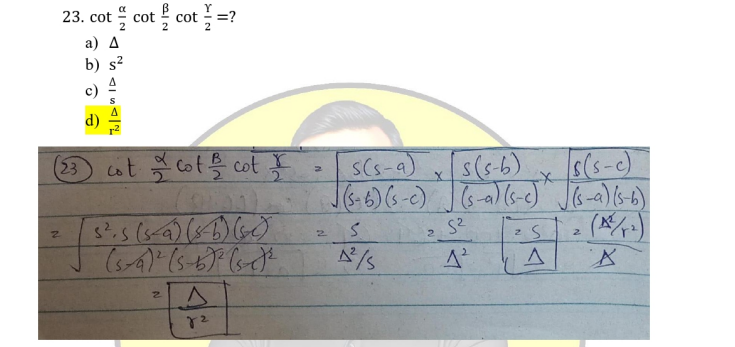 23. cot α/2 cot β/2 cot γ/2 =?
a) Δ
b) s²
c) Δ/s
d) Δ/r²
(23) cot α/2 cot β/2 cot γ/2 = √(s(s-a)/(s-b)(s-c)) × √(s(s-b)/(s-a)(s-c)) × √(s(s-c)/(s-a)(s-b))
= √(s².s(s-a)(s-b)(s-c)/(s-a)²(s-b)²(s-c)²) = s/Δ²/s = s²/Δ² = s/Δ = (Δ²/r²)/Δ
= Δ/r²